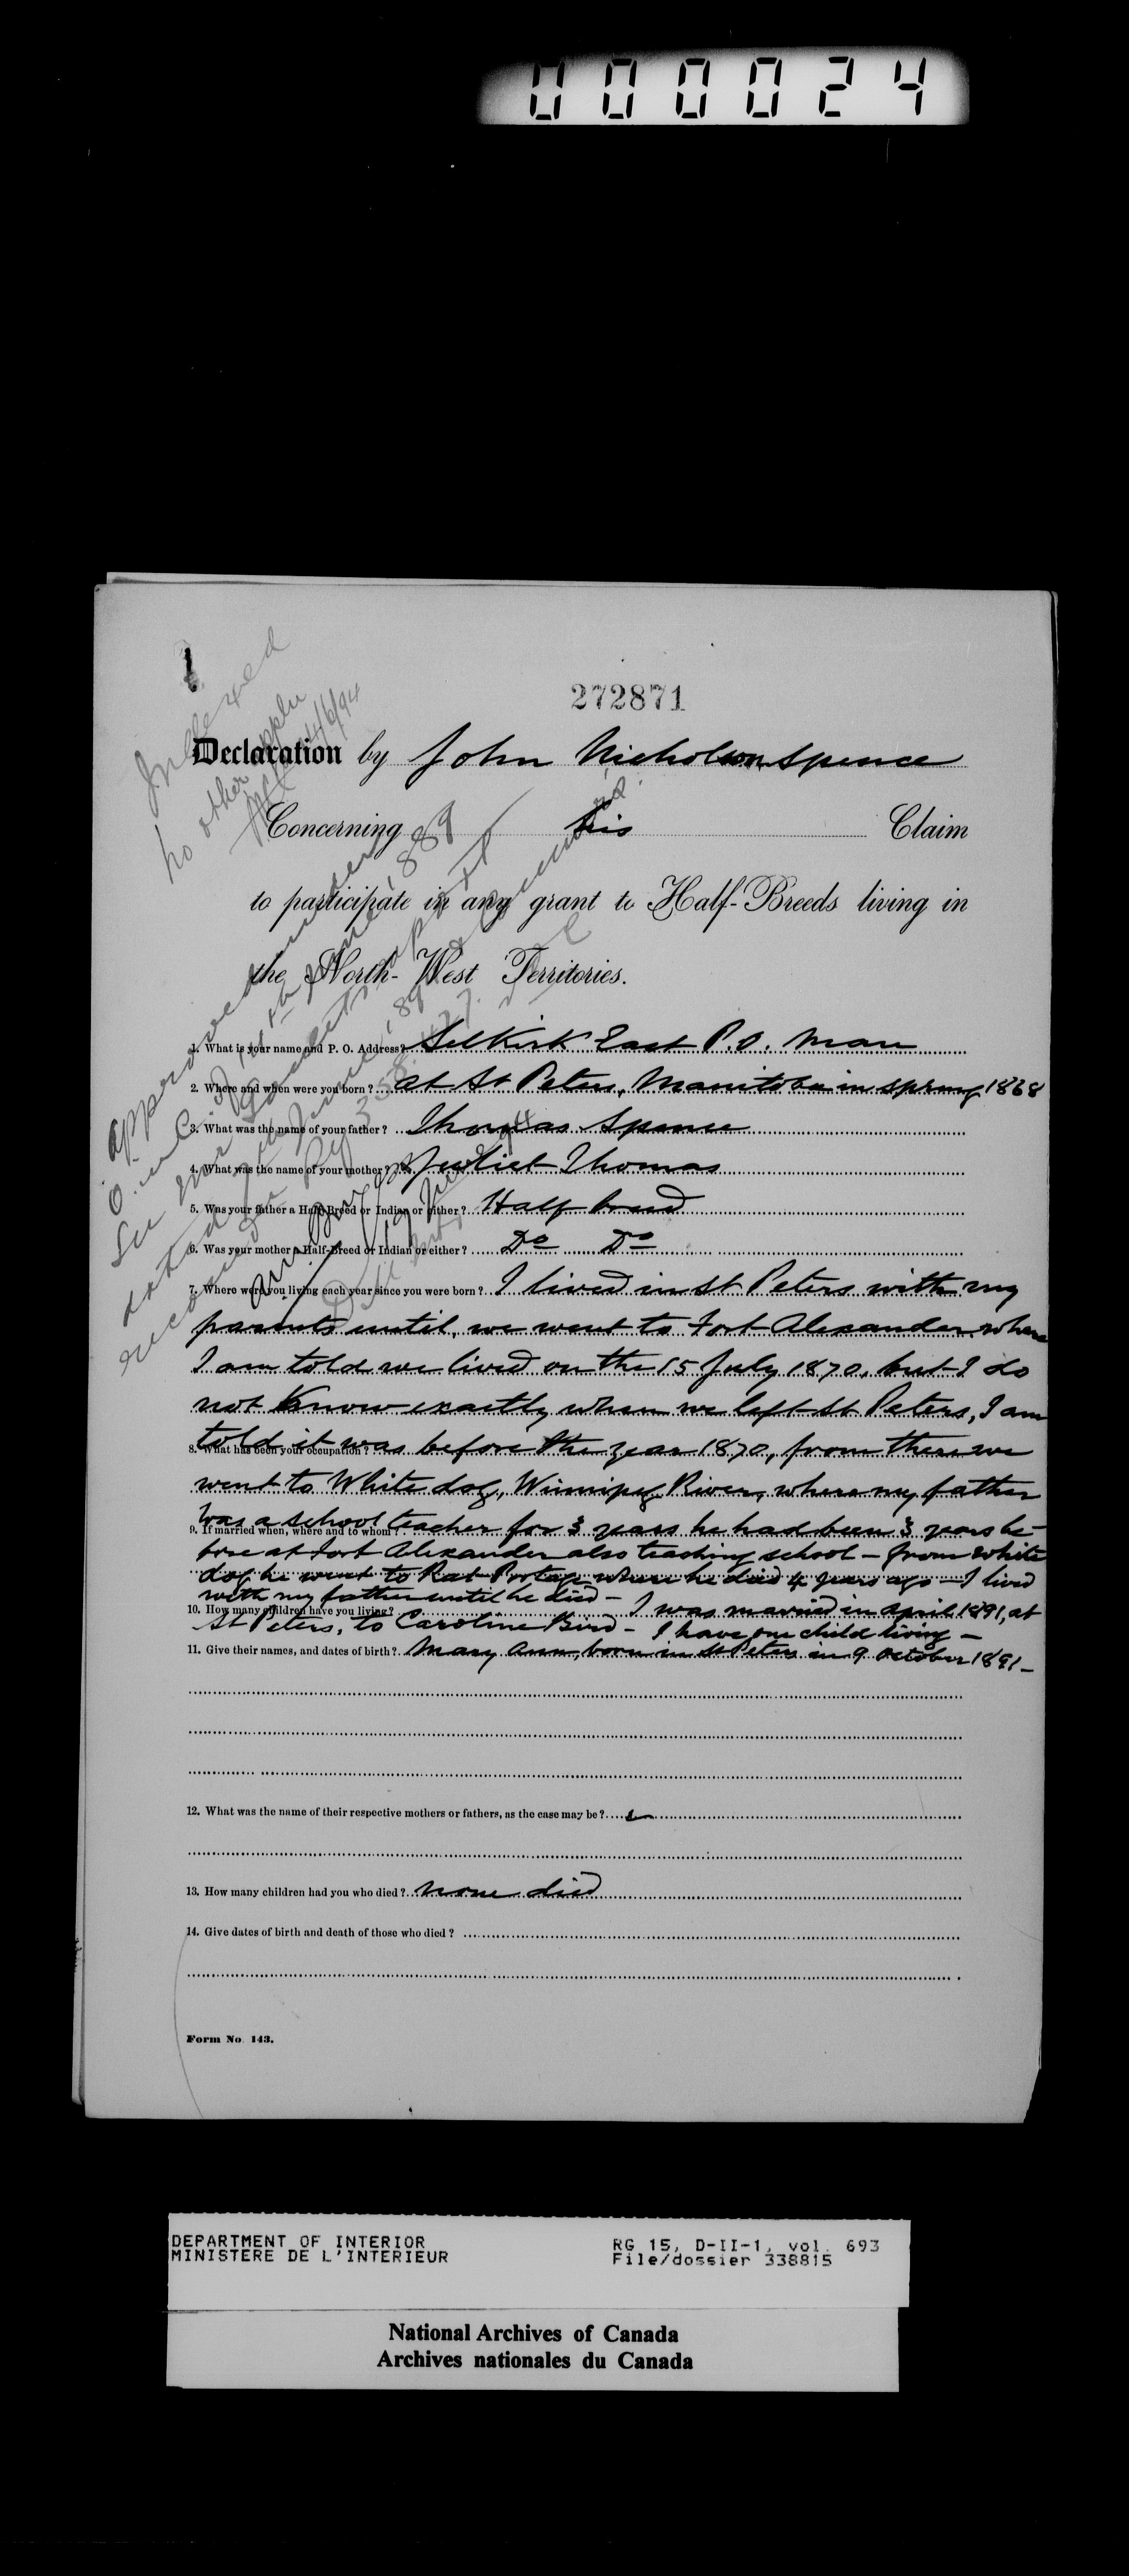 000024
1
272871
Indexed
no other appln
14/6/94
Declaration by John Nicholson Spence
Concerning his Claim
to participate in any grant to Half-Breeds living in
the North-West Territories.
approved under
O. in C.
1. What is your name and P. O. Address? Selkirk East P.O. Man
2. Where and when were you born? at St Peters, Manitoba in spring 1868
3. What was the name of your father? Thomas Spence
4. What was the name of your mother? Juliet Thomas
5. Was your father a Half-Breed or Indian or either? Half breed
6. Was your mother a Half-Breed or Indian or either? Do Do
7. Where were you living each year since you were born? I lived in St Peters with my
parents until, we went to Fort Alexander where
I am told we lived on the 15 July 1870, but I do
not know exactly when we left St Peters, I am
8. What has been your occupation?
told it was before the year 1870, from there we
went to White dog, Winnipeg River, where my father
9. If married when, where and to whom?
was a school teacher for 3 years he had been 3 years be-
fore at Fort Alexander also teaching school - from White
dog he went to Rat Portage where he died 4 years ago - I lived
with my father until he died - I was married in April 1891, at
10. How many children have you living?
St Peters, to Caroline Bird - I have one child living -
11. Give their names, and dates of birth? Mary Ann, born in St Peters in 9 October 1891 -
12. What was the name of their respective mothers or fathers, as the case may be?
13. How many children had you who died? none died
14. Give dates of birth and death of those who died?
Form No. 143.
DEPARTMENT OF INTERIOR RG 15, D-II-1, vol. 693
MINISTERE DE L'INTERIEUR File/dossier 338815
National Archives of Canada
Archives nationales du Canada